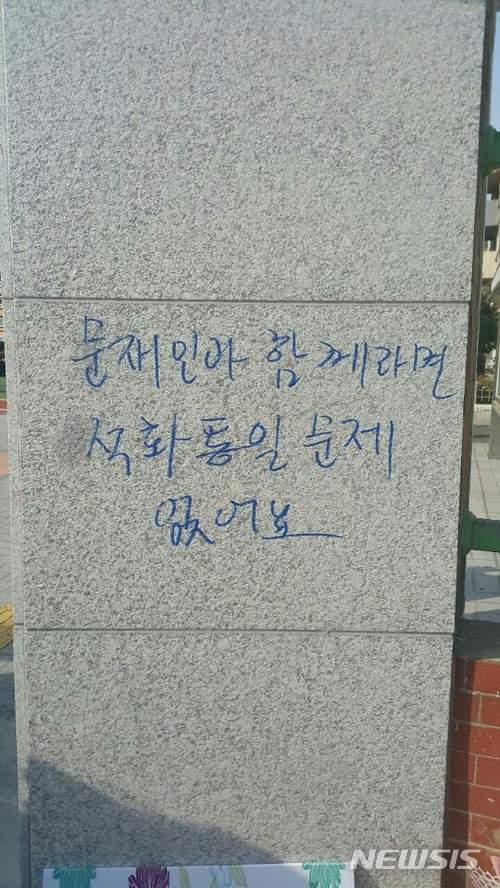 문재인과 함께라면
석화통일 문제
없어요
NEWSIS